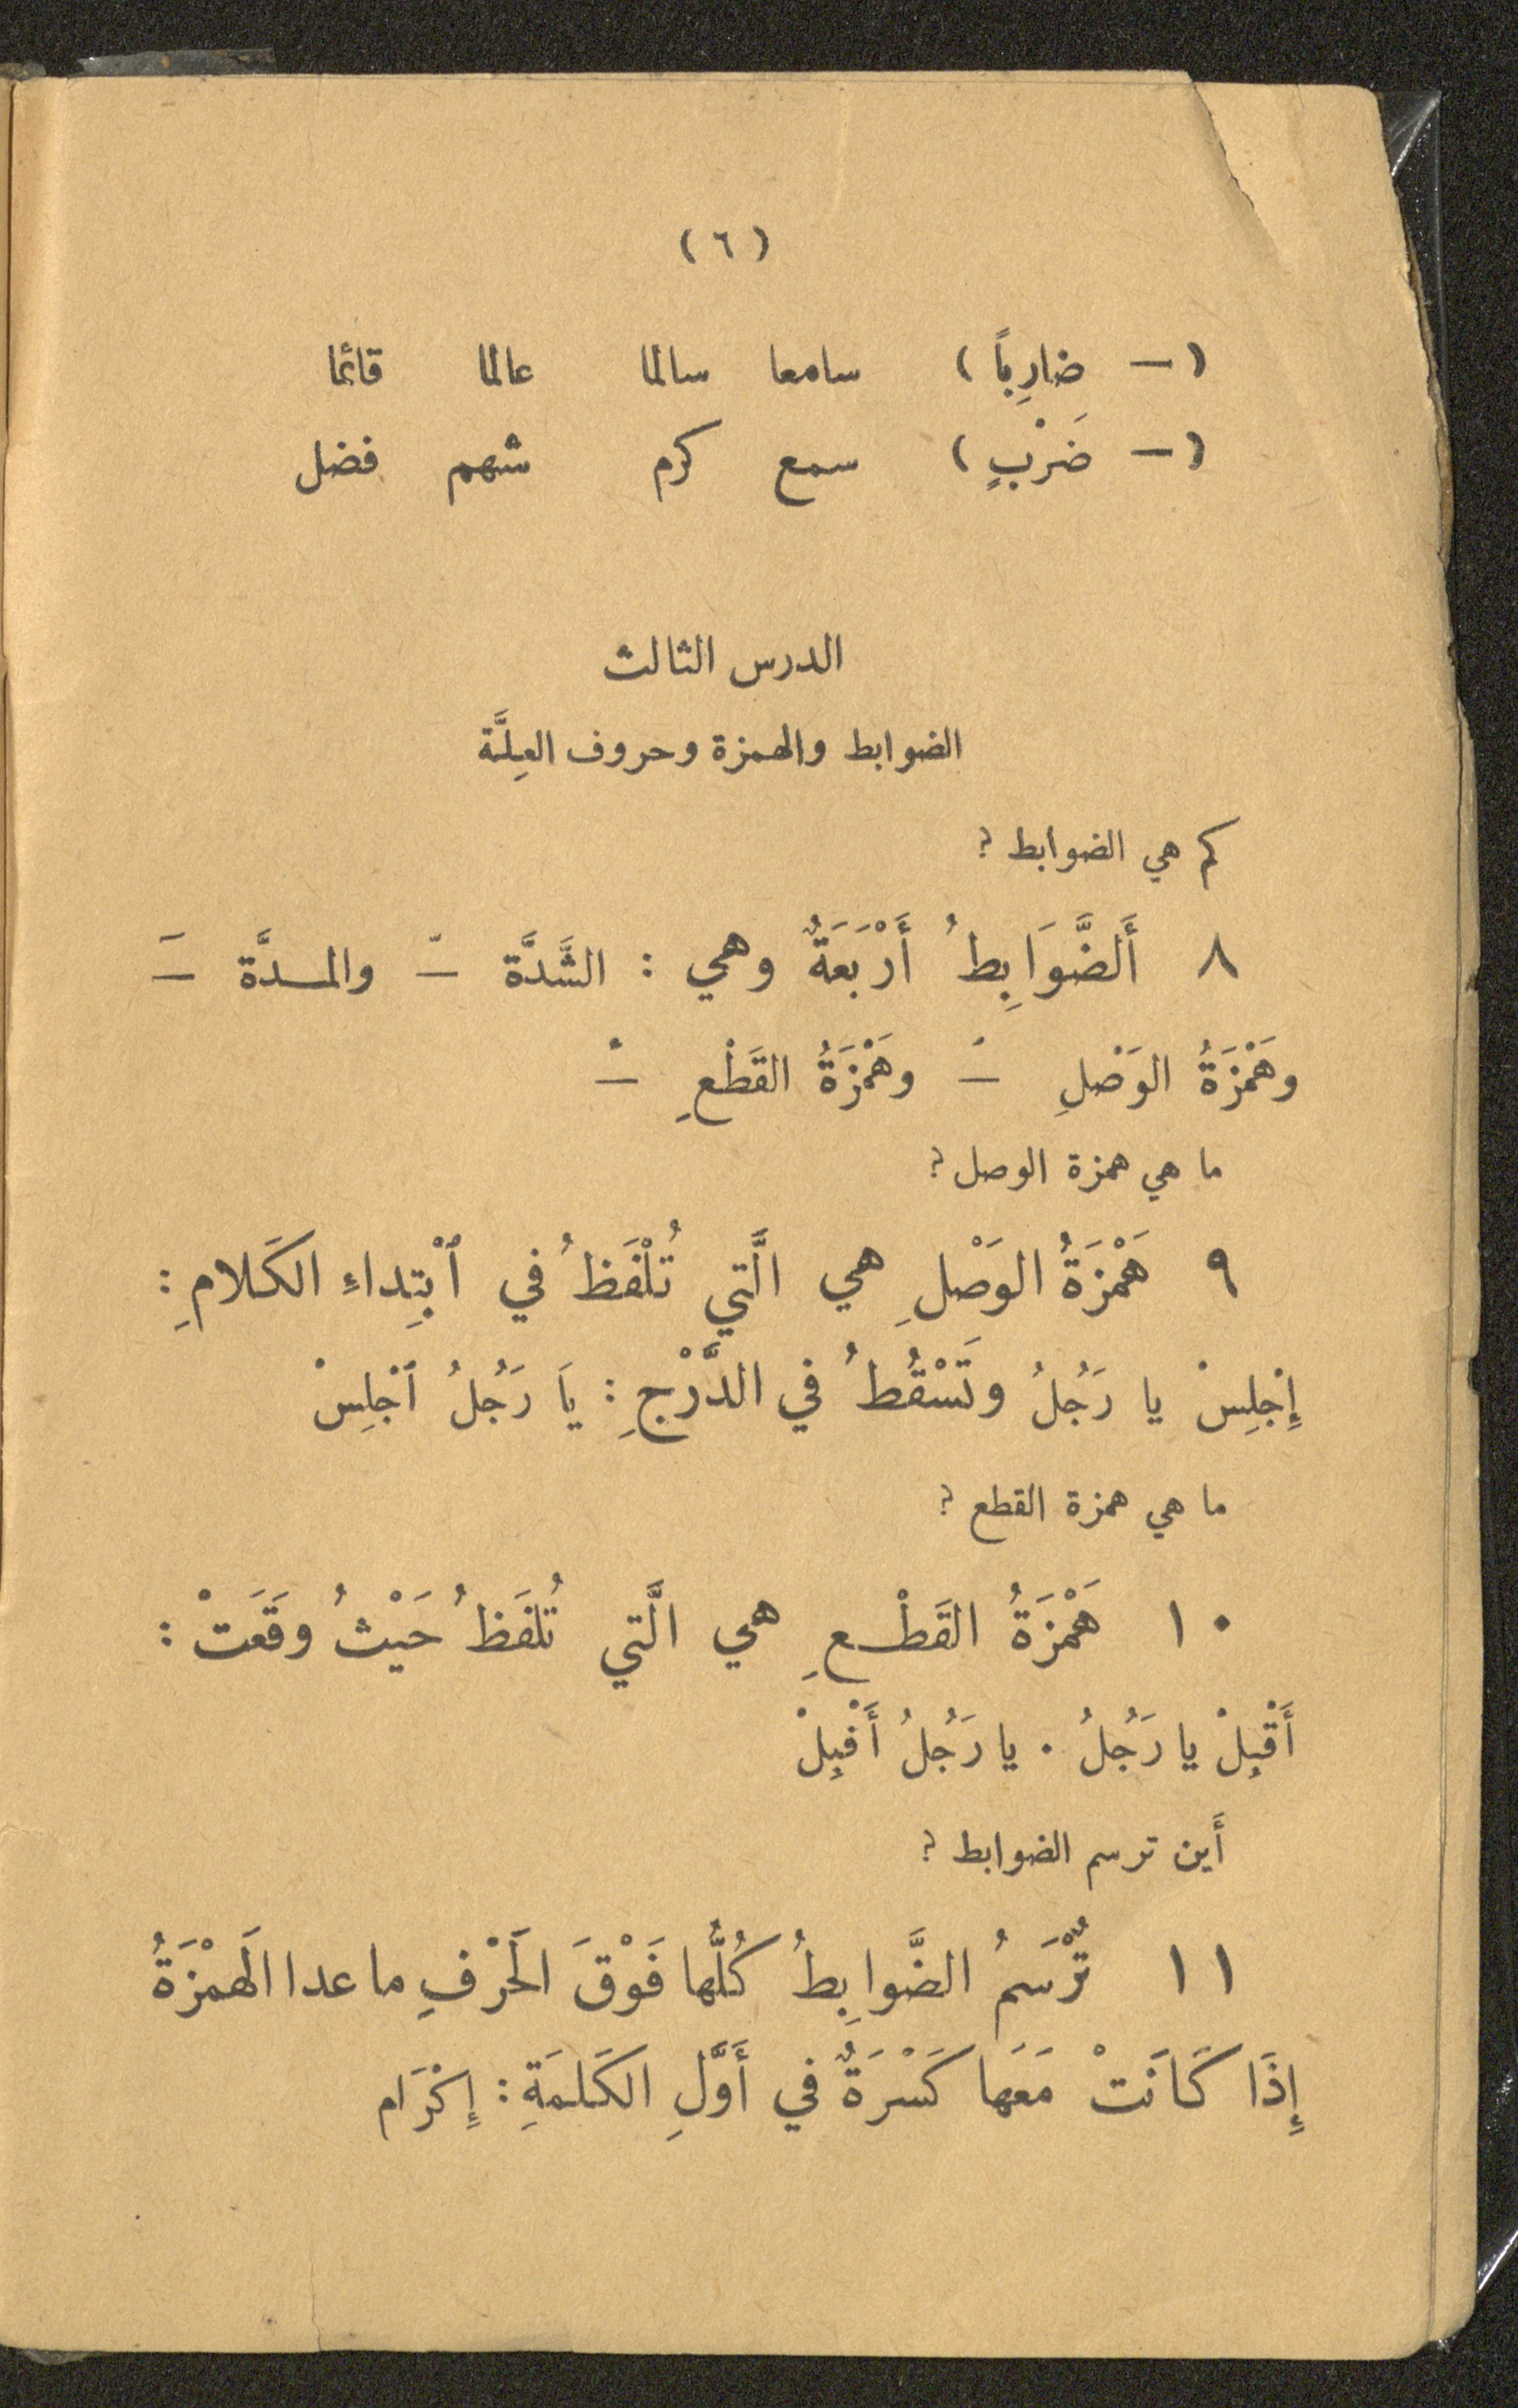 (٦)
(— ضارِباً) سامعا سالما عالما قائما
(— ضَرْبٍ) سمع كرم شهم فضل
الدرس الثالث
الضوابط والهمزة وحروف العِلَّة
كم هي الضوابط؟
٨ أَلضَّوَابِطُ أَرْبَعَةٌ وهي : الشَّدَّة ـّ والمدَّة ـٓ
وهَمْزَةُ الوَصْلِ ـٔ وهَمْزَةُ القَطْعِ ـٔ
ما هي همزة الوصل؟
٩ هَمْزَةُ الوَصْلِ هي الَّتي تُلْفَظُ في ٱبْتِداءِ الكَلامِ :
إِجْلِسْ يا رَجُلُ وتَسْقُطُ في الدَّرْجِ : يَا رَجُلُ ٱجْلِسْ
ما هي همزة القطع؟
١٠ هَمْزَةُ القَطْعِ هي الَّتي تُلفَظُ حَيْثُ وقَعَتْ :
أَقْبِلْ يا رَجُلُ . يا رَجُلُ أَقْبِلْ
أَين ترسم الضوابط؟
١١ تُرْسَمُ الضَّوابِطُ كُلُّها فَوْقَ الَحَرْفِ ما عدا الَهمْزَةُ
إِذَا كَانَتْ مَعَها كَسْرَةٌ في أَوَّلِ الكَلمَةِ : إِكْرَام